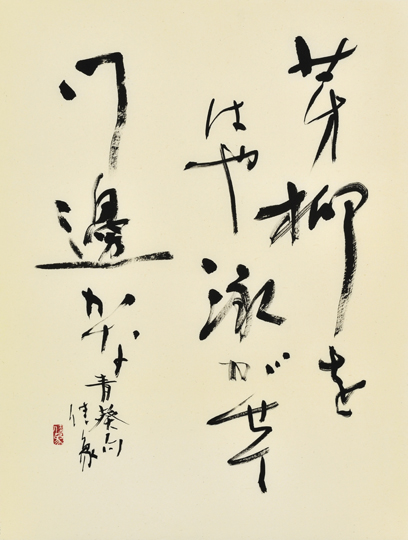 芽柳を
はや泳がせて
門邊かな
青葵句